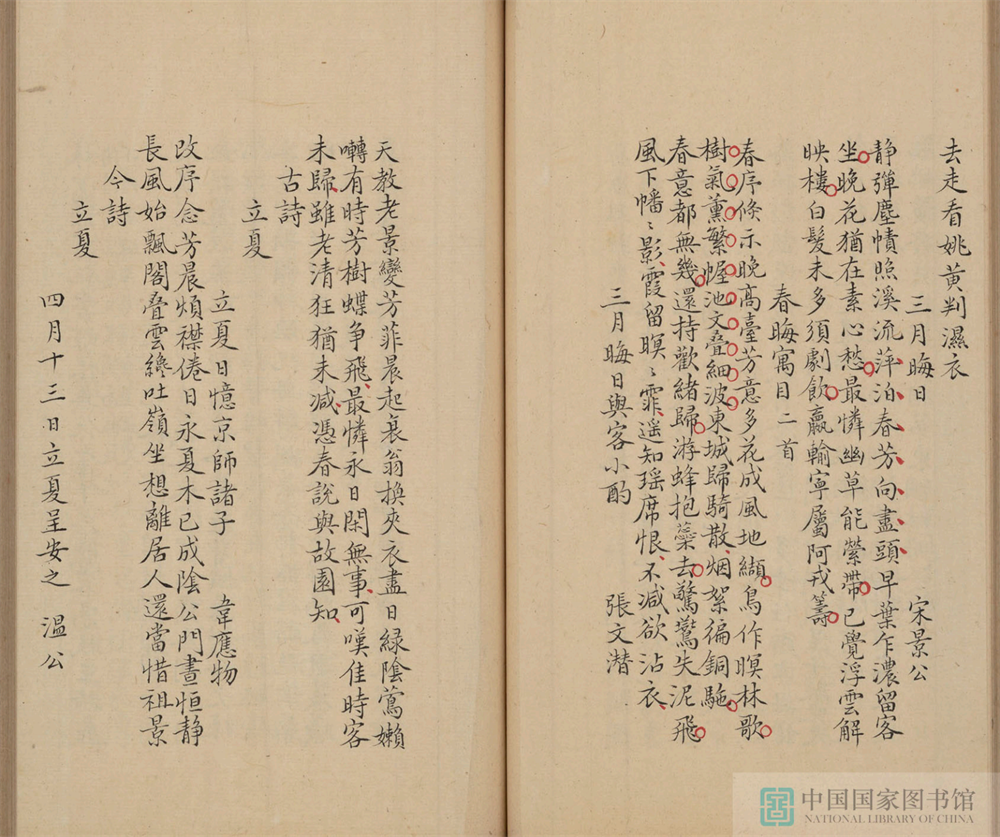 去走看姚黄判濕衣
三月晦日 宋景公
静彈塵幘照溪流萍泊春芳向盡頭早葉乍濃留客
坐晚花猶在素心愁最憐幽草能縈帶已覺浮雲解
映樓白髮未多須劇飲羸輸寧屬阿戎籌
春晦寓目二首
春序倏示晚高臺芳意多花成風地纈鳥作暝林歌
樹氣薰繁幄池文叠細波東城歸騎散烟絮徧銅駞
春意都無幾還持歡緒歸游蜂抱蘂去驚鷰失泥飛
風下幡〻影霞留暝〻霏遥知瑶席恨不減欲沾衣
三月晦日與客小酌 張文潛
天教老景變芳菲晨起衰翁換夾衣盡日綠陰鶯嬾
囀有時芳樹蝶争飛最憐永日閑無事可嘆佳時客
未歸雖老清狂猶未减憑春說與故園知
古詩
立夏
立夏日憶京師諸子 韋應物
改序念芳晨煩襟倦日永夏木已成陰公門晝恒静
長風始飄閣叠雲纔吐嶺坐想離居人還當惜徂景
今詩
立夏
四月十三日立夏呈安之 温公
中国国家图书馆
NATIONAL LIBRARY OF CHINA